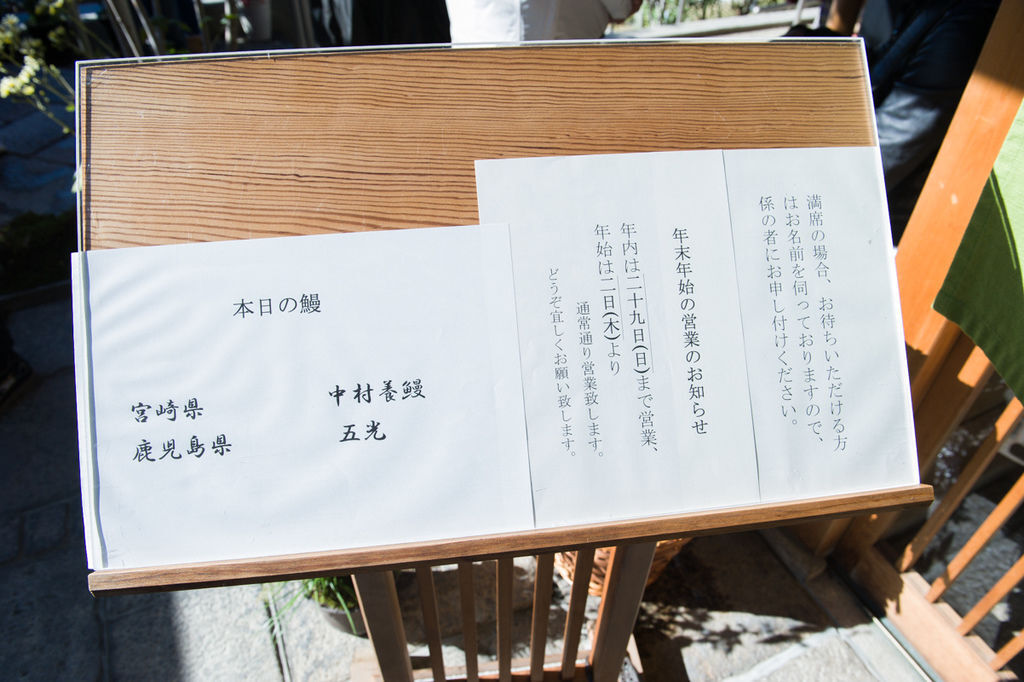 満席の場合、お待ちいただける方
はお名前を伺っておりますので、
係の者にお申し付けください。
年末年始の営業のお知らせ
年内は二十九日(日)まで営業、
年始は二日(木)より
通常通り営業致します。
どうぞ宜しくお願い致します。
本日の鰻
宮崎県 中村養鰻
鹿児島県 五光